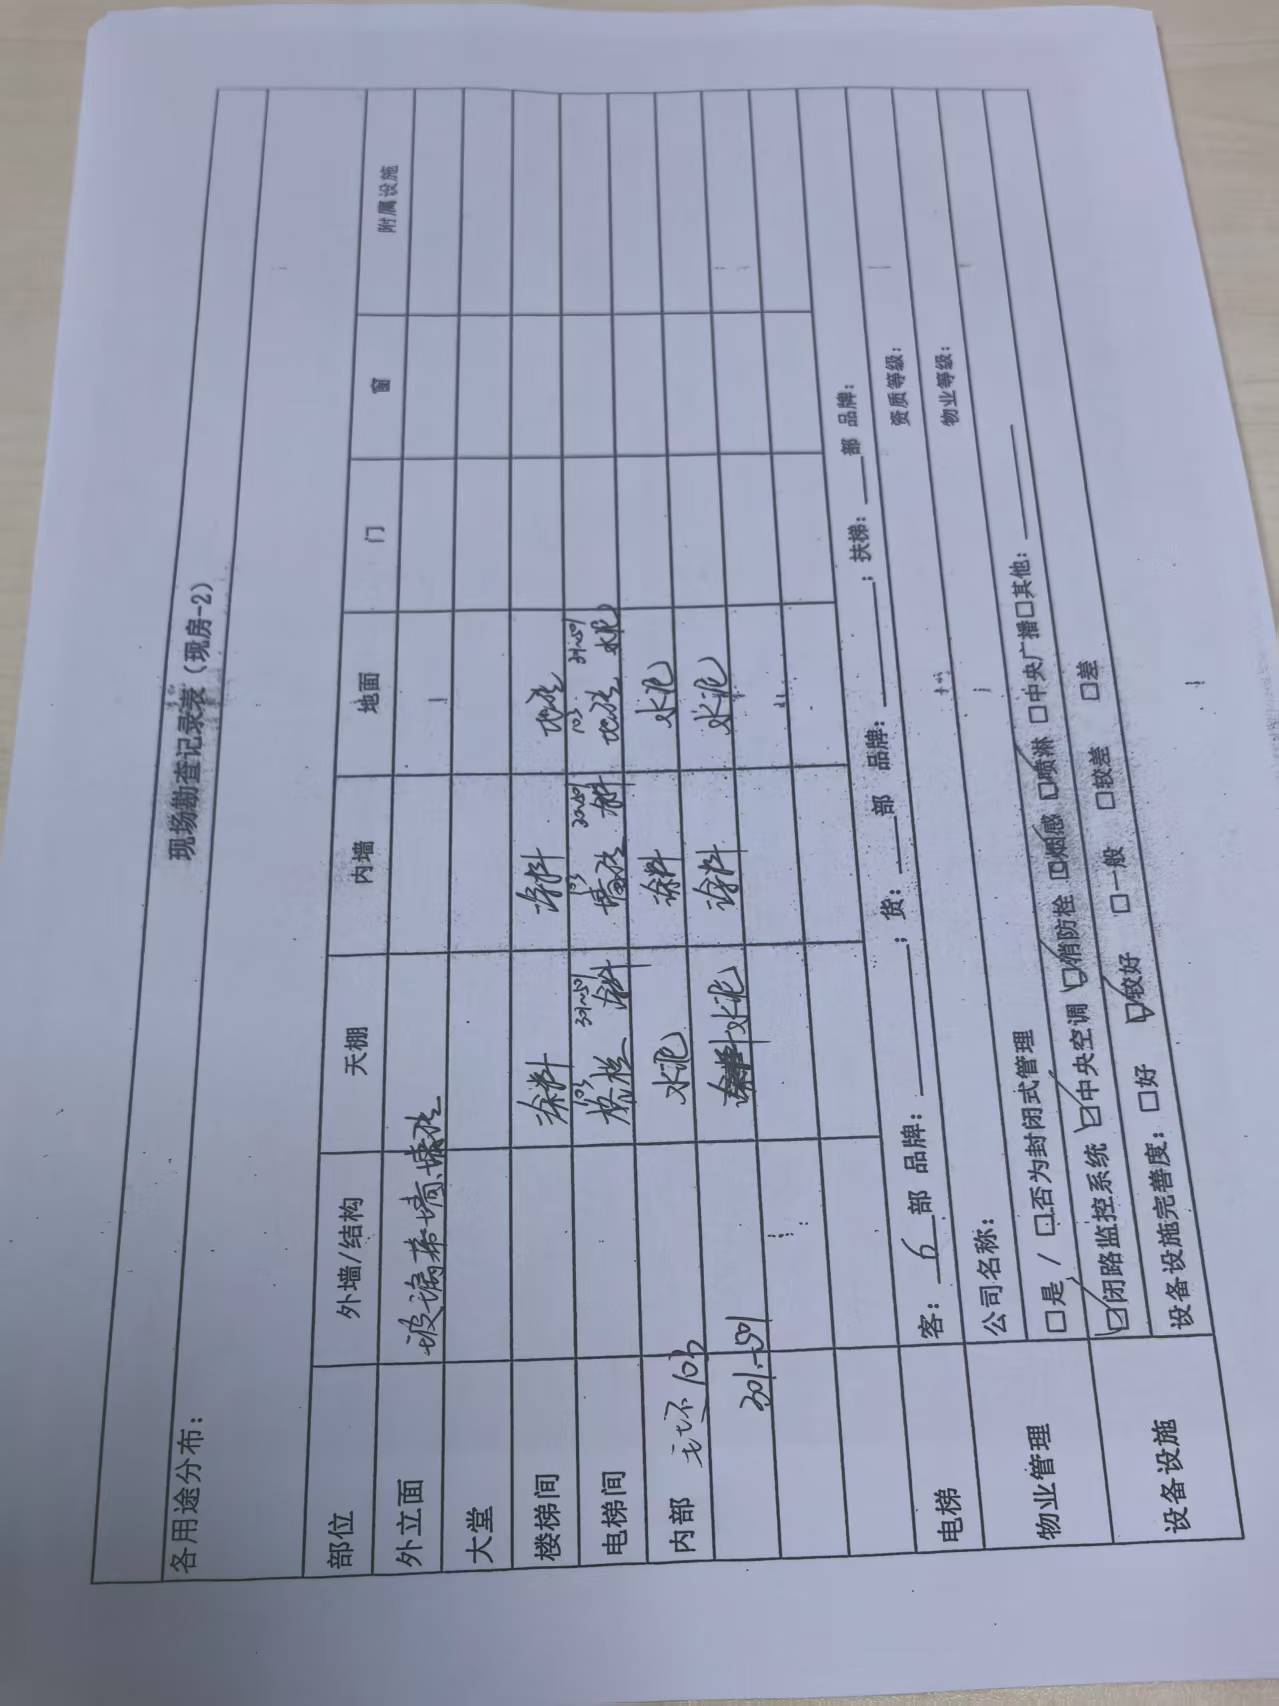 现场勘查记录表（现房-2）
各用途分布：
部位 外墙/结构 天棚 内墙 地面 门 窗 附属设施
外立面 玻璃幕墙、墙砖
大堂
楼梯间 涂料 涂料 地砖
电梯间 103 301~501 涂料 103 墙砖 涂料 103 地砖 301~501 水泥
内部 毛坯 103 水泥 涂料 水泥
301~501 水泥 涂料 水泥
电梯 客：6部 品牌： ；货： 部 品牌： ；扶梯： 部 品牌：
物业管理 公司名称： 资质等级：
□是 / □否为封闭式管理 物业等级：
设备设施 ☑闭路监控系统 ☑中央空调 ☑消防栓 ☑烟感 ☑喷淋 □中央广播□其他：
设备设施完善度：□好 ☑较好 □一般 □较差 □差